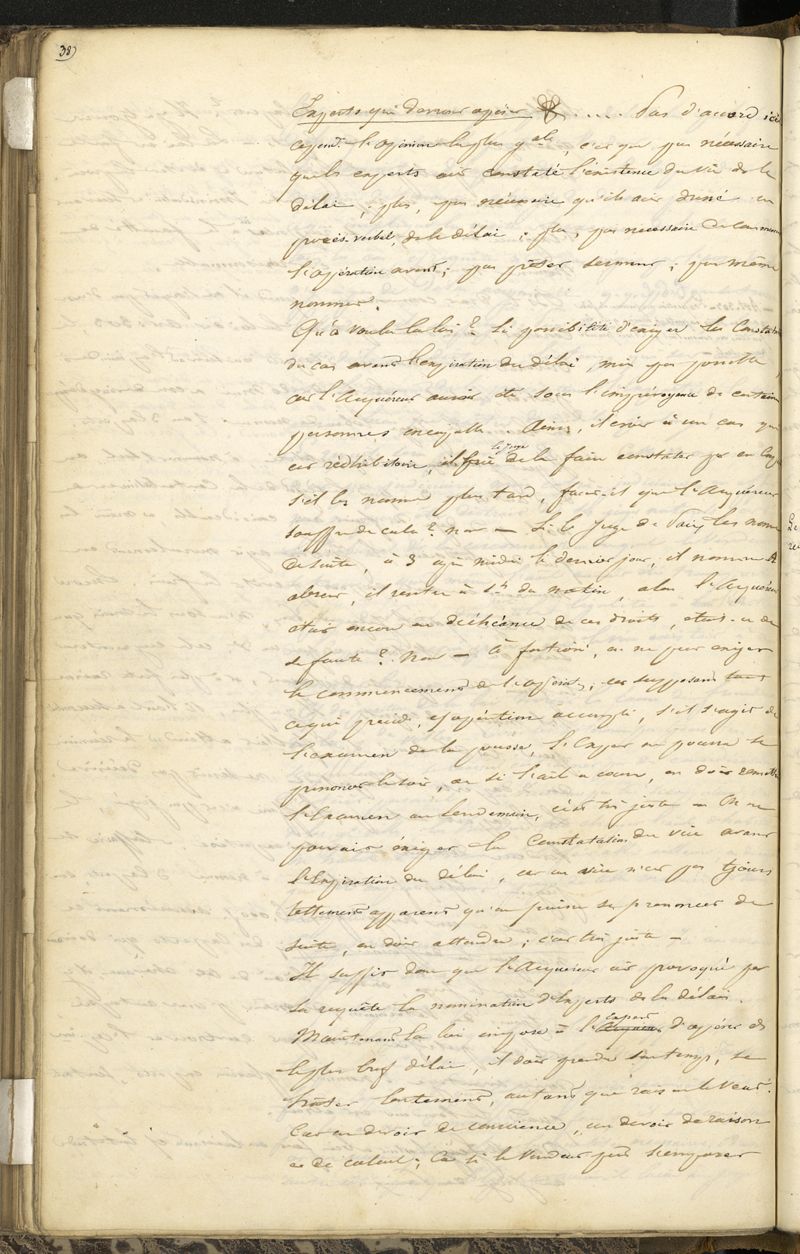 38)
Experts qui devront opérer ..... Pas d'accord ici
cepend.t l'opinion la plus g.ale, c'est que pas nécessaire
que les experts aient constaté l'existence du vice ds le
délai ; plus, pas nécessaire qu'ils aient dressé un
procès-verbal, ds le délai ; plus, pas necessaire de commencer
l'opération avant ; pas prêter serment ; pas même
nommer.
Qu'a voulu la loi ? La possibilité d'exiger les Constater
du cas avant l'expiration du délai, mais pas possible,
car l'Acquéreur aurait été sous l'imprévoyance de certaines
personnes . Ainsi, il croit à un cas qui
est rédhibitoire, il de le faire constater par en
le juge
s'il les nomme plus tard, faut-il que l'Acquéreur
souffre de cela ? non — Si le Juge de Paix les nomme
de suite, à 3 après midi le dernier jour, il nomme
absent, il rentre à 1.h du matin, alors l'Acquéreur
était encore en déchéance de ses droits, était-ce de
sa faute ? Non — à fortiori, on ne peut exiger
le commencement de l'opération, car supposant tout
ce qui précède, opération accompli, s'il s'agit de
l'examen de la pousse, l'Exper ne pourra se
prononcer le soir, ou si l'ail a couru, on doit remettre
l'Examen au lendemain, c'est très juste — On ne
pouvait éxiger la Constatation du vice avant
l'Expiration du délai, car un vice n'est pas tjours
tellement apparent qu'on puisse se prononcer de
suite, on doit attendre ; c'est très juste —
Il suffit donc que l'Acquéreur ait provoqué par
sa requête la nomination d'Experts ds le délai.
Maintenant la loi impose à l'Expert d'opérer ds
le plus bref délai, il doit prendre son temps, se
hâter lentement, autant que raison le veut.
Car un devoir de conscience, un devoir de raison
et de calcul ; Car si le Vendeur peut s'emparer